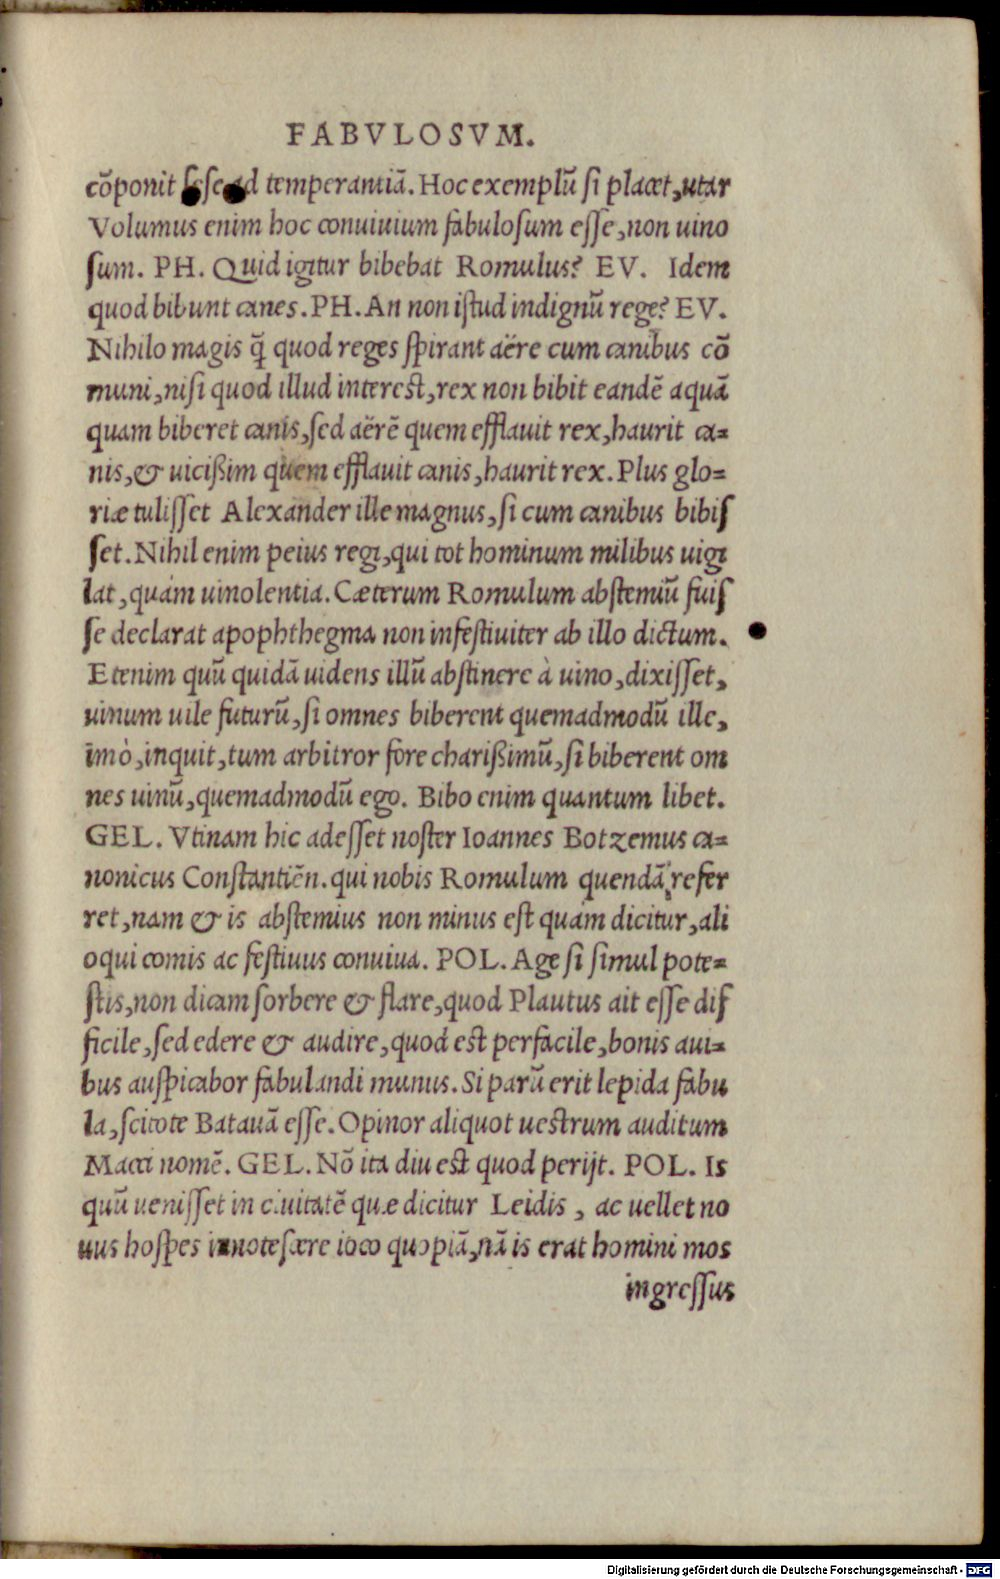 FABVLOSVM.
cōponit sese ad temperantiā. Hoc exemplū si placet, utar
Volumus enim hoc conuiuium fabulosum esse, non uino
sum. PH. Quid igitur bibebat Romulus? EV. Idem
quod bibunt canes. PH. An non istud indignū rege? EV.
Nihilo magis q̄ quod reges spirant aëre cum canibus cō
muni, nisi quod illud interest, rex non bibit eandē aquā
quam biberet canis, sed aërē quem efflauit rex, haurit ca=
nis, & uicißim quem efflauit canis, haurit rex. Plus glo=
riæ tulisset Alexander ille magnus, si cum canibus bibis
set. Nihil enim peius regi, qui tot hominum milibus uigi
lat, quàm uinolentia. Cæterum Romulum abstemiū fuis
se declarat apophthegma non infestiuiter ab illo dictum.
Etenim quū quidā uidens illū abstinere à uino, dixisset,
uinum uile futurū, si omnes biberent quemadmodū ille,
imò, inquit, tum arbitror fore charißimū, si biberent om
nes uinū, quemadmodū ego. Bibo enim quantum libet.
GEL. Vtinam hic adesset noster Ioannes Botzemus ca=
nonicus Constantiēn. qui nobis Romulum quendā refer
ret, nam & is abstemius non minus est quàm dicitur, ali
oqui comis ac festiuus conuiua. POL. Age si simul pote=
stis, non dicam sorbere & flare, quod Plautus ait esse dif
ficile, sed edere & audire, quod est perfacile, bonis aui=
bus auspicabor fabulandi munus. Si parū erit lepida fabu
la, scitote Batauā esse. Opinor aliquot uestrum auditum
Macci nomē. GEL. Nō ita diu est quod perijt. POL. Is
quū uenisset in ciuitatē quæ dicitur Leidis, ac uellet no
uus hospes innotescere ioco quopiā, nā is erat homini mos
ingressus
Digitalisierung gefördert durch die Deutsche Forschungsgemeinschaft - DFG